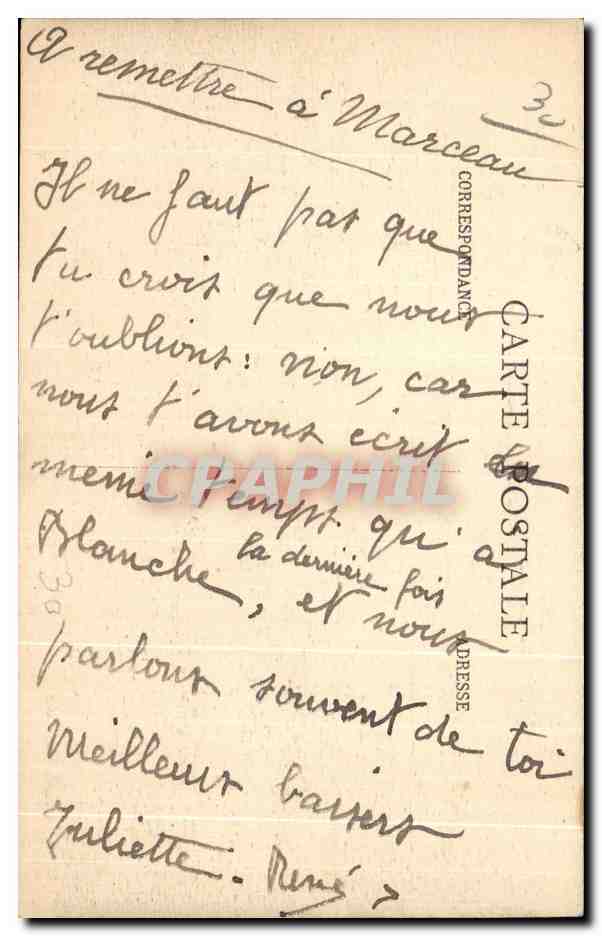 A remettre à Marceau
30
Il ne faut pas que
tu crois que nous
t'oublions : non, car
nous t'avons écrit le
meme temps qu'à
la dernière fois
Blanche, et nous
parlons souvent de toi
Meilleurs baisers
Juliette - René
30
CORRESPONDANCE
CARTE POSTALE
ADRESSE
CPAPHIL